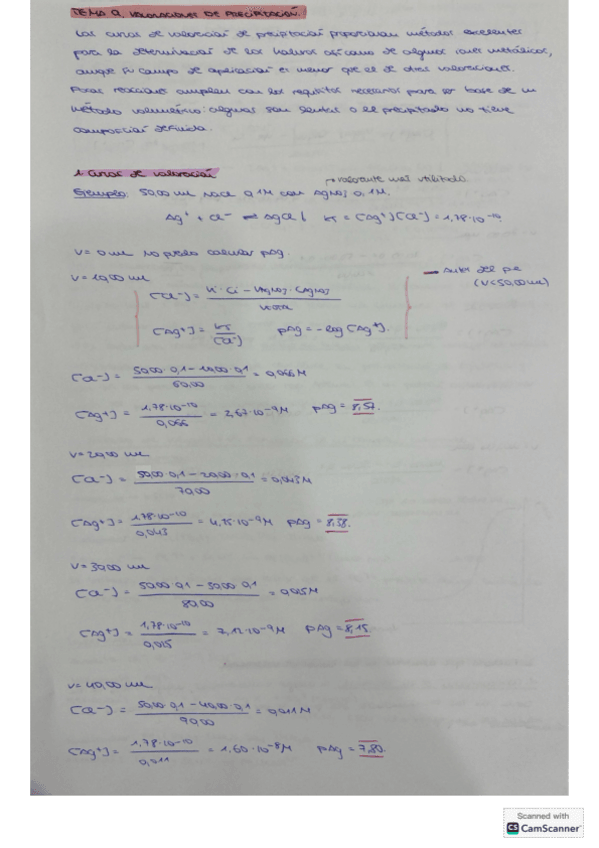 TEMA 9. VALORACIONES DE PRECIPITACIÓN.
Las curvas de valoración de precipitación proporcionan métodos excelentes
para la determinación de los haluros así como de algunos iones metálicos,
aunque su campo de aplicación es menor que el de otras valoraciones.
Pocas reacciones cumplen con los requisitos necesarios para ser base de un
método volumétrico: algunas son lentas o el precipitado no tiene
composición definida.
1. Curvas de valoración
→ valorante más utilizado
Ejemplo: 50,00 mL NaCl 0,1M con AgNO3 0,1M.
Ag+ + Cl- ⇌ AgCl↓ Kps = [Ag+][Cl-] = 1,78·10-10
V = 0 mL No puedo calcular pAg.
V = 10,00 mL
— antes del pe
(V<50,00 mL)
[Cl-] = Vi·Ci - VAgNO3·CAgNO3 / Vtotal
[Ag+] = / [Cl-] pAg = -log [Ag+].
[Cl-] = 50,00·0,1 - 10,00·0,1 / 60,00 = 0,066M
[Ag+] = 1,78·10-10 / 0,066 = 2,67·10-9 M pAg = 8,57.
V = 20,00 mL
[Cl-] = 50,00·0,1 - 20,00·0,1 / 70,00 = 0,043M
[Ag+] = 1,78·10-10 / 0,043 = 4,15·10-9 M pAg = 8,38.
V = 30,00 mL
[Cl-] = 50,00·0,1 - 30,00·0,1 / 80,00 = 0,025M
[Ag+] = 1,78·10-10 / 0,025 = 7,12·10-9 M pAg = 8,15.
V = 40,00 mL
[Cl-] = 50,00·0,1 - 40,00·0,1 / 90,00 = 0,011M
[Ag+] = 1,78·10-10 / 0,011 = 1,60·10-8 M pAg = 7,80.
Scanned with
CS CamScanner